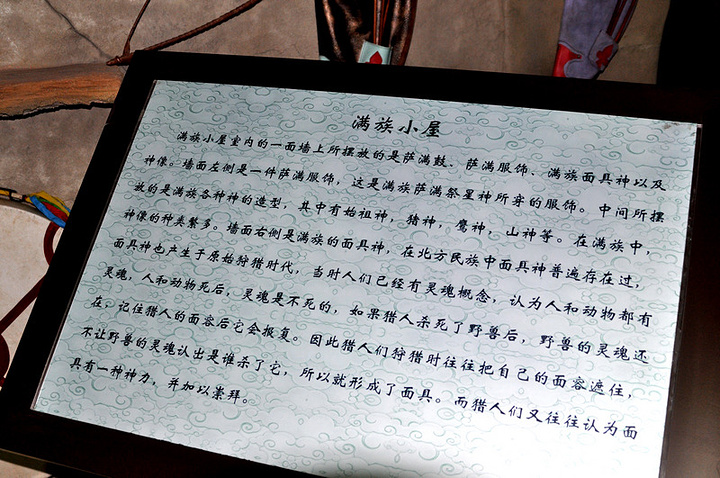 满族小屋
满族小屋室内的一面墙上所摆放的是萨满鼓、萨满服饰、满族面具神以及
神像。墙面左侧是一件萨满服饰，这是满族萨满祭星神所穿的服饰。中间所摆
放的是满族各种神的造型，其中有始祖神，猎神，鹰神，山神等。在满族中，
神像的种类繁多。墙面右侧是满族的面具神，在北方民族中面具神普遍存在过，
面具神也产生于原始狩猎时代，当时人们已经有灵魂概念，认为人和动物都有
灵魂，人和动物死后，灵魂是不死的，如果猎人杀死了野兽后，野兽的灵魂还
在，记住猎人的面容后它会报复。因此猎人们狩猎时往往把自己的面容遮住，
不让野兽的灵魂认出是谁杀了它，所以就形成了面具。而猎人们又往往认为面
具有一种神力，并加以崇拜。